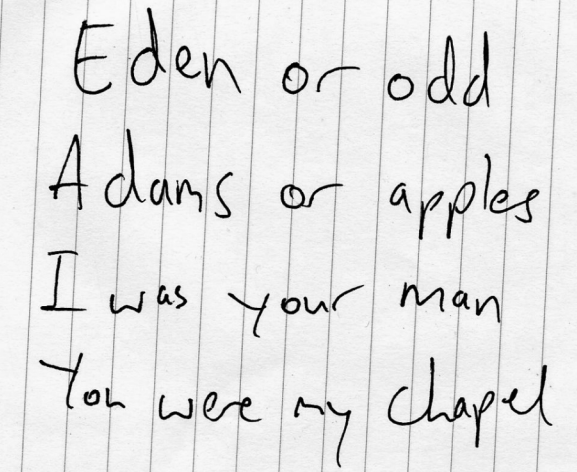 Eden or odd
Adams or apples
I was your man
You were my chapel